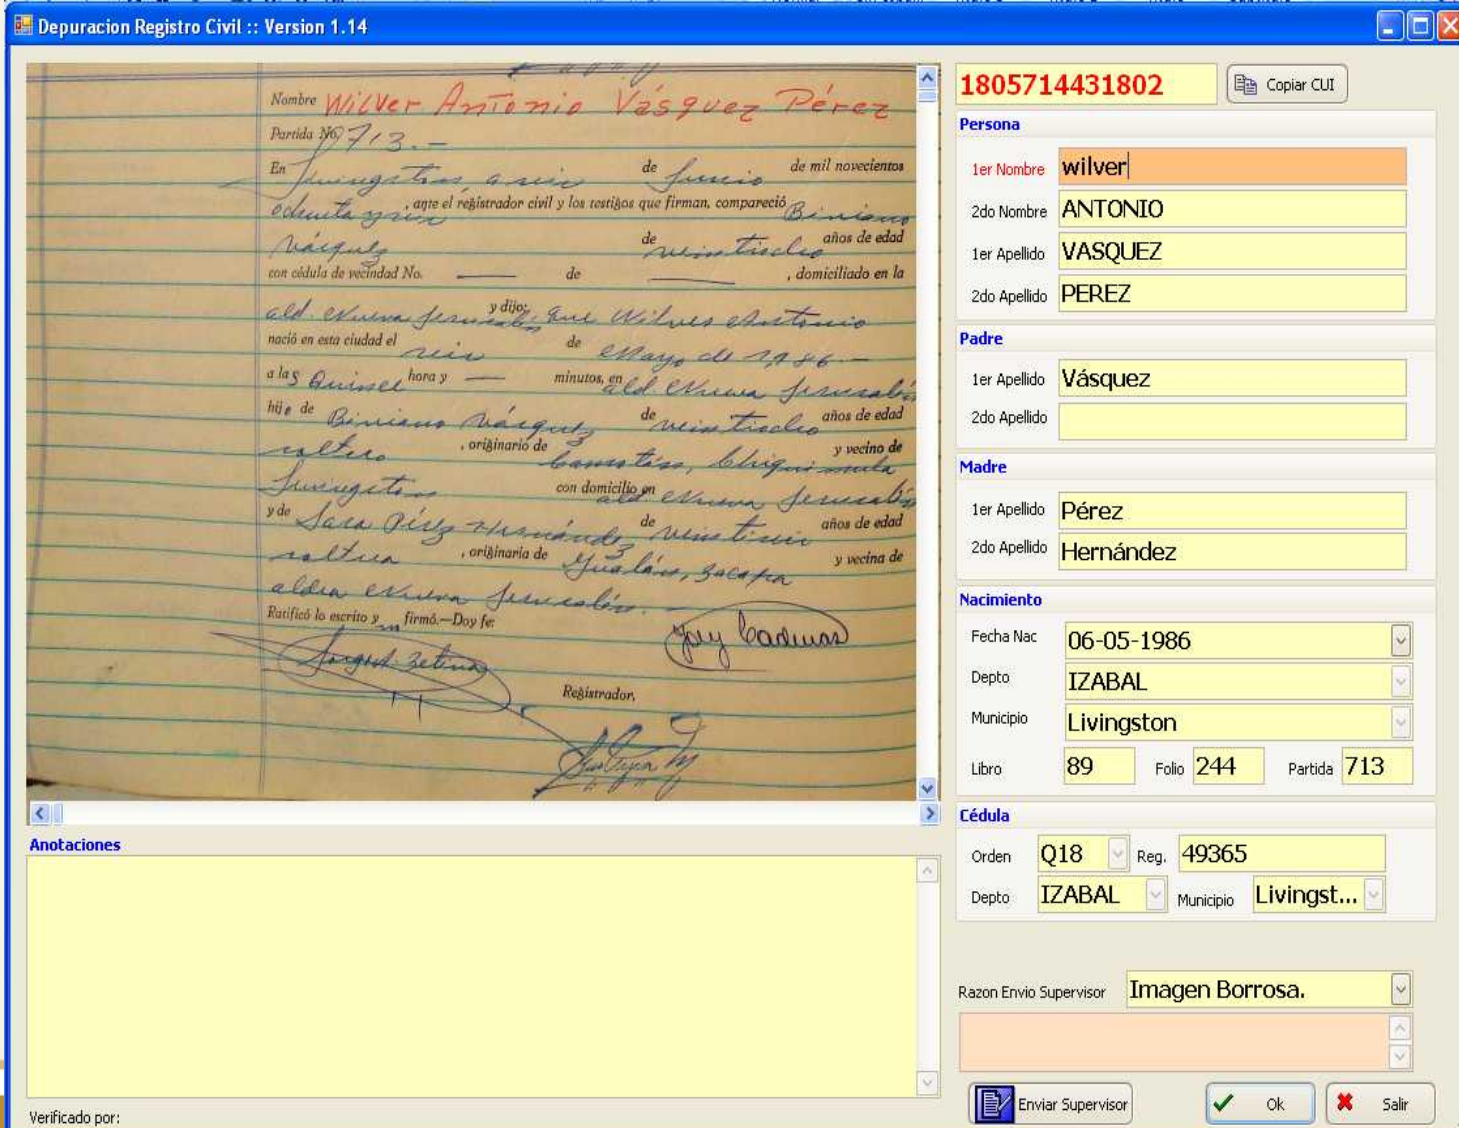 Depuracion Registro Civil :: Version 1.14
Nombre Wilver Antonio Vásquez Pérez
Partida No. 713.-
En Livingston, a seis de Junio de mil novecientos
ochenta y seis, ante el registrador civil y los testigos que firman, compareció Biniano
Vásquez de veintiocho años de edad
con cédula de vecindad No. —— de ——, domiciliado en la
ald. Nueva Jerusalén y dijo: Que Wilver Antonio
nació en esta ciudad el seis de Mayo de 1,986.—
a las Quince hora y — minutos, en ald. Nueva Jerusalén
hijo de Biniano Vásquez de veintiocho años de edad
soltero, originario de Camotán, Chiquimula y vecino de
Livingston con domicilio en ald Nueva Jerusalén
y de Sara Pérez Hernández de años de edad
soltera, originaria de Gualán, Zacapa y vecina de
aldea Nueva Jerusalén.
Ratificó lo escrito y no firmó.—Doy fe:
Registrador,
Anotaciones
Verificado por:
1805714431802 Copiar CUI
Persona
1er Nombre wilver
2do Nombre ANTONIO
1er Apellido VASQUEZ
2do Apellido PEREZ
Padre
1er Apellido Vásquez
2do Apellido
Madre
1er Apellido Pérez
2do Apellido Hernández
Nacimiento
Fecha Nac 06-05-1986
Depto IZABAL
Municipio Livingston
Libro 89 Folio 244 Partida 713
Cédula
Orden Q18 Reg. 49365
Depto IZABAL Municipio Livingst...
Razon Envio Supervisor Imagen Borrosa.
Enviar Supervisor Ok Salir